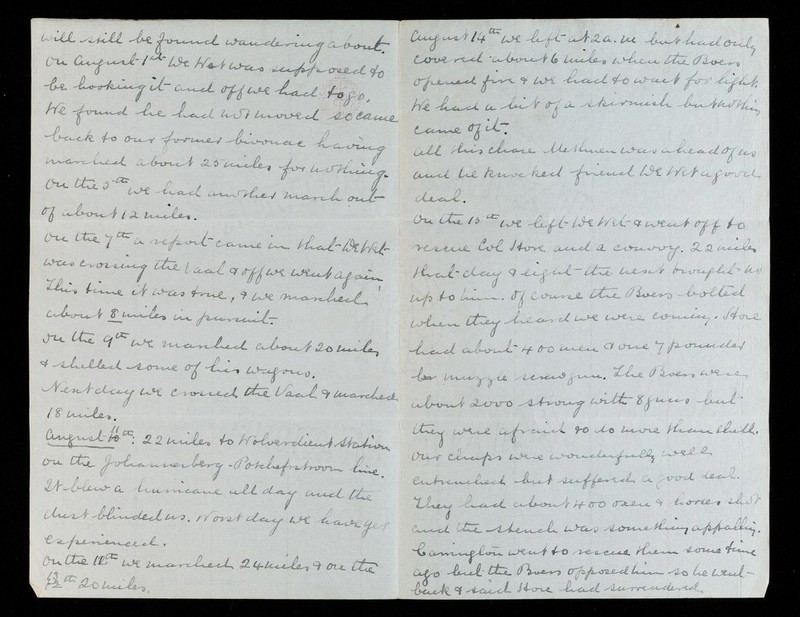 will still be found wandering about.
On August 1st De Wet was supposed to
be hooking it and off we had to go.
We found he had not moved so came
back to our former bivouac having
marched about 25 miles for nothing.
On the 5th we had another march out
of about 12 miles.
On the 7th a report came in that De Wet
was crossing the Vaal & off we went again,
This time it was true, & we marched
about 8 miles in pursuit.
On the 9th we marched about 20 miles
& shelled some of his wagons.
Next day we crossed the Vaal & marched
18 miles.
August 11th. 22 miles to Wolverdient Station
on the Johannesberg - Potchefstroom line.
It blew a hurricane all day and the
dust blinded us. Worst day we have yet
experienced.
On the 12th we marched 24 miles & on the
13th 20 miles.
August 14th we left at 2 a.m but had only
covered about 6 miles when the Boers
opened fire & we had to wait for light.
We had a bit of a skirmish but nothing
came of it.
All this chase Methuen was ahead of us
and he knocked friend De Wet a good
deal.
On the 15th we left De Wet & went off to
rescue Col Hore and a convoy. 22 miles
that day & eight the next brought us
up to him. Of course the Boers bolted
when they heard we were coming. Hore
had about 400 men & one 7 pounder
muzzle screw gun. The Boers were
about 2000 strong with 8 guns but
they were afraid to do more than shell.
Our chaps were wonderfully well
entrenched but suffered a good deal.
They had about 400 oxen & horses shot
and the stench was something appalling.
Carrington went to rescue them some time
ago but the Boers opposed him so he went
back & said Hore had surrendered.